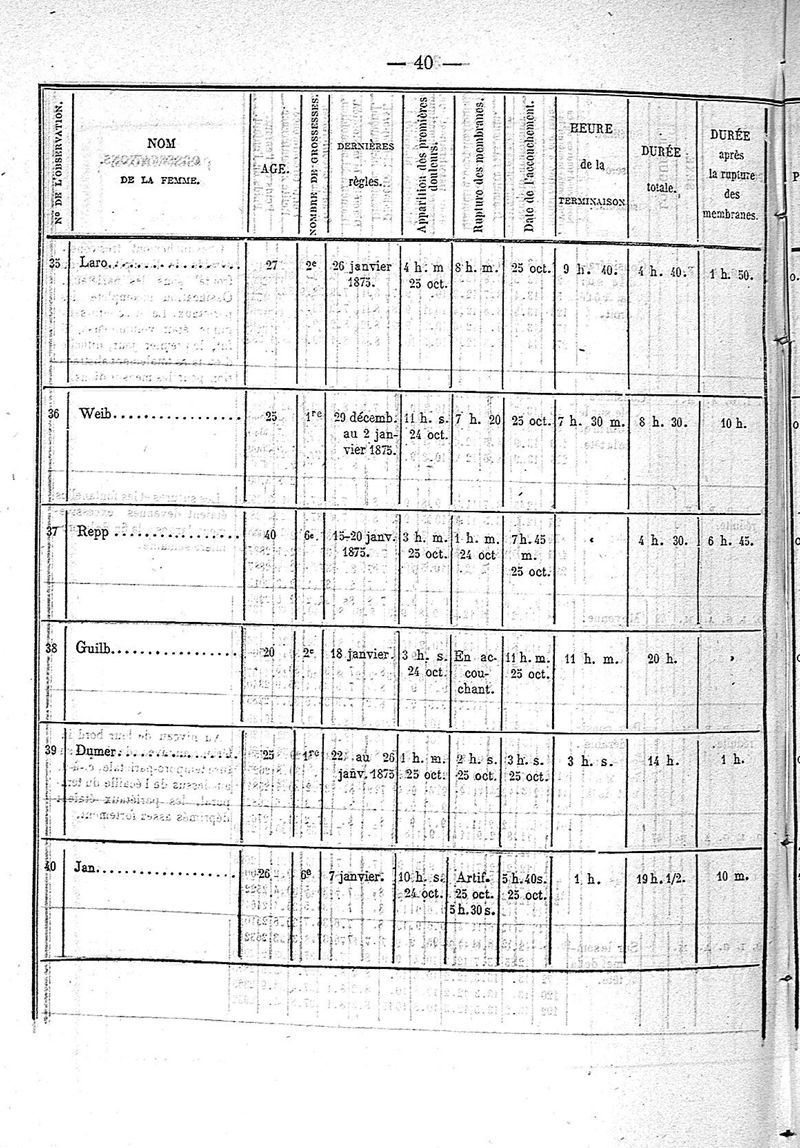 — 40 —
Nº DE L'OBSERVATION.
NOM
DE LA FEMME.
AGE.
NOMBRE DE GROSSESSES.
DERNIÈRES
règles.
Apparition des premières
douleurs.
Rupture des membranes.
Date de l'accouchement.
HEURE
de la
TERMINAISON
DURÉE
totale.
DURÉE
après
la rupture
des
membranes.
35 Laro. 27 2e 26 janvier 4 h. m 8 h. m. 25 oct. 9 h. 40. 4 h. 40. 1 h. 50.
1875. 25 oct.
36 Weib. 25 1re 29 décemb. 11 h. s. 7 h. 20 25 oct. 7 h. 30 m. 8 h. 30. 10 h.
au 2 jan- 24 oct.
vier 1875.
37 Repp 40 6e. 15-20 janv. 3 h. m. 1 h. m. 7 h. 45 « 4 h. 30. 6 h. 45.
1875. 25 oct. 24 oct m.
25 oct.
38 Guilb. 20 2e 18 janvier. 3 h. s. En ac- 11 h. m. 11 h. m. 20 h. »
24 oct. cou- 25 oct.
chant.
39 Dumer. 25 1re 22 au 26 1 h. m. 2 h. s. 3 h. s. 3 h. s. 14 h. 1 h.
janv. 1875 25 oct. 25 oct. 25 oct.
40 Jan. 26 6e 7 janvier. 10 h. s. Artif. 5 h. 40 s. 1 h. 19 h. 1/2. 10 m.
24 oct. 25 oct. 25 oct.
5 h. 30 s.